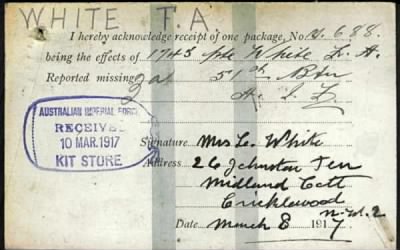 WHITE T.A.
I hereby acknowledge receipt of one package, No. 688
being the effects of 1745 Pte White A.
Reported missing 51st Btn
A. I. F.
AUSTRALIAN IMPERIAL FORCE
RECEIVED
10 MAR. 1917
KIT STORE
Signature Mrs L. White
Address 26 Johnston Terr
Midland Cott
Cricklewood
N.W.2
Date March 8 1917